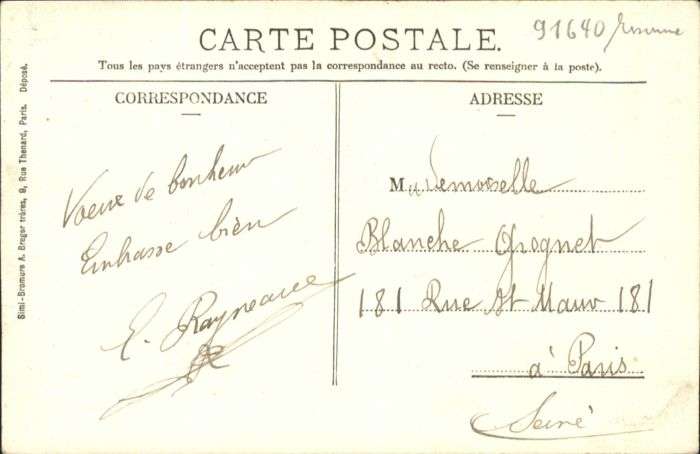 91640 Essonne
CARTE POSTALE.
Tous les pays étrangers n'acceptent pas la correspondance au recto. (Se renseigner à la poste).
CORRESPONDANCE
Voeux de bonheur
Embrasse bien
E.
ADRESSE
Mademoiselle
Blanche
181 Rue St Maur 181
à Paris
Seine
Simi-Bromure A. Breger frères, 9, Rue Thenard, Paris. Déposé.